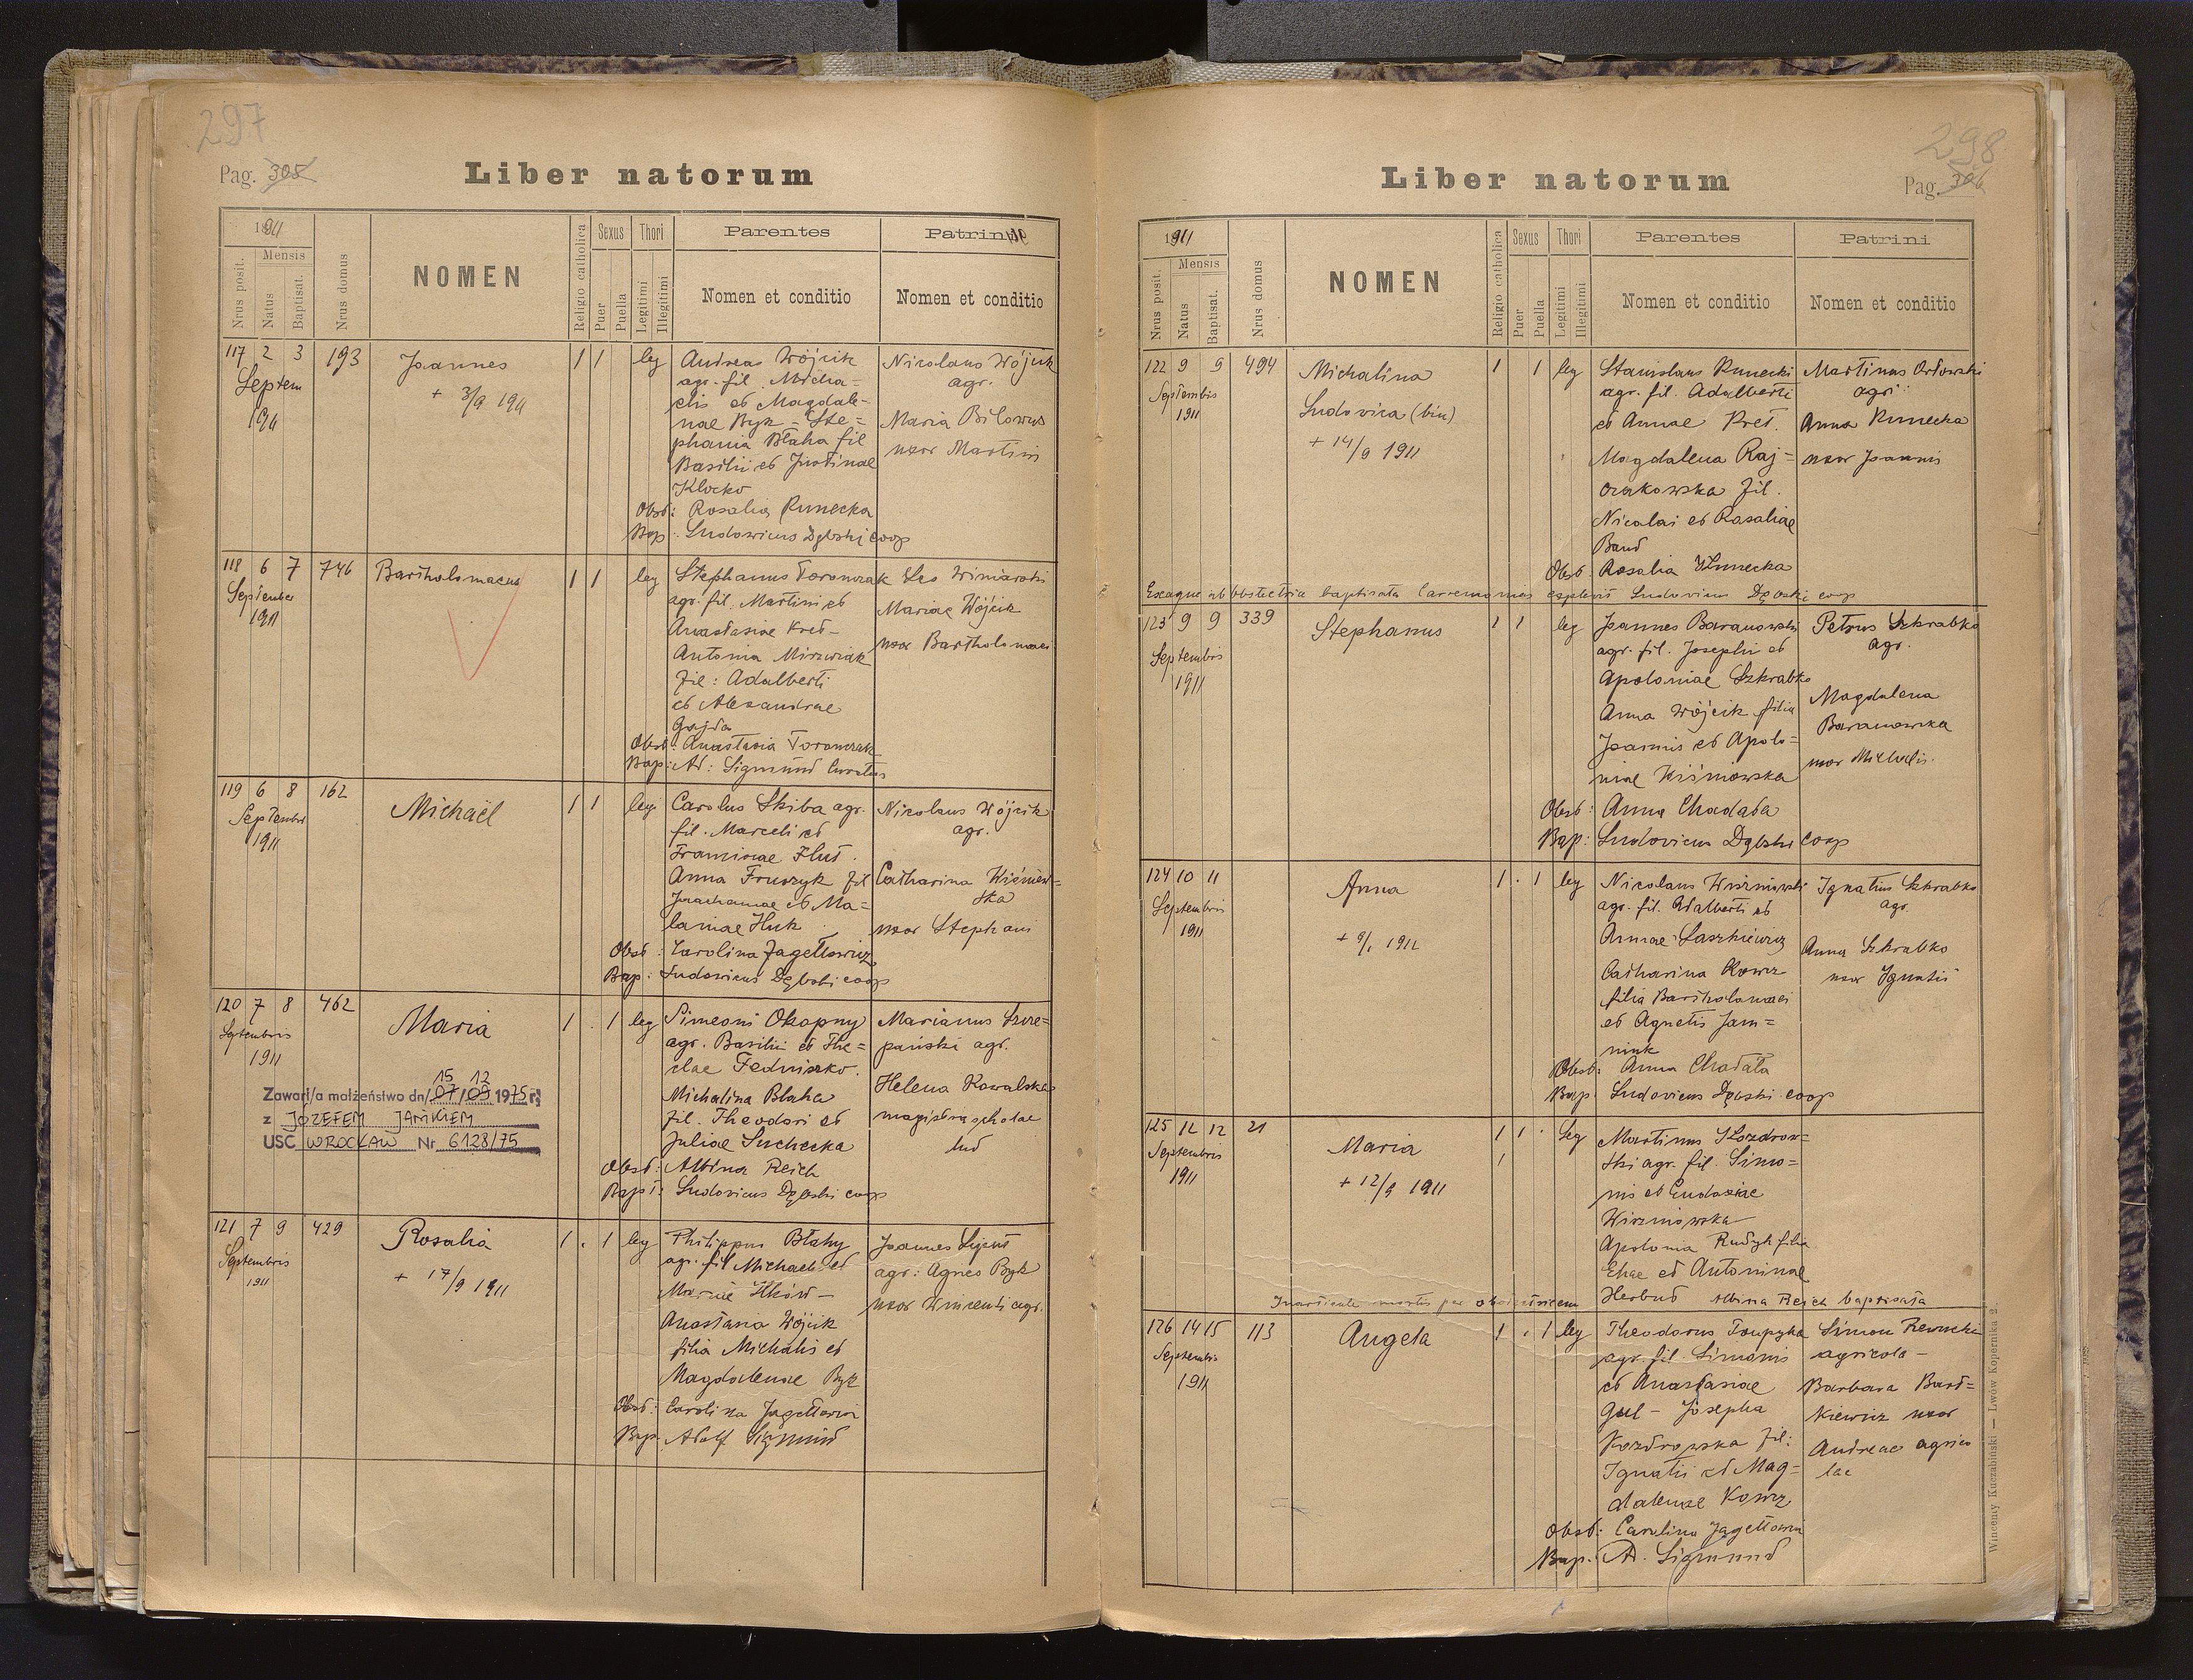 297
Pag. 305
Liber natorum
1911
Nrus posit.
Mensis
Natus
Baptisat.
Nrus domus
NOMEN
Religio catholica
Sexus
Puer
Puella
Thori
Legitimi
Illegitimi
Parentes
Nomen et conditio
Patrini
Nomen et conditio
117 2 3 193 Joannes 1 1 leg Andreas Wójcik Nicolaus Wójcik
Septem
1911
+ 3/9 1911
agr. fil. Micha=
agr.
elis et Magdale=
nae Byk - Ste=
Maria Bilowus
phania Błaha fil
uxor Martini
Basilii et Justinae
Klocko
Obst: Rosalia Runecka
Bap: Ludovicus Dębski coop
118 6 7 746 Bartholomaeus 1 1 leg Stephanus Toronczak Leo Winiarski
September
1911
agr. fil. Martini et
Mariae Wójcik
Anastasiae Kret-
uxor Bartholomaei
Antonia Mirzwiak
fil: Adalberti
et Alexandrae
Gajda
Obst: Anastasia Toronczak
Bap: Ad: Sigmund Curatus
119 6 8 162 Michaël 1 1 legi Carolus Skiba agr. Nicolaus Wójcik
Septembri
1911
fil. Marceli et
agr.
Franciscae Flut.
Anna Fruszyk fil
Catharina Wiśniew=
ska
et Ma=
laniae Huk
uxor Stephani
Obst: Carolina Jagełłowicz
Bap: Ludovicus Dębski coop
120 7 8 462 Maria 1 . 1 leg Simeoni Okopny Marianus Szcze=
Septembris
1911
agr. Basilii et The=
pański agr.
clae Fedniszko.
Michalina Blaha
Helena Kowalska
fil. Theodori et
magistra scholae
Juliae Suchecka
lud
Zawarł/a małżeństwo dn/07/09 1975 r.
15 12
z JÓZEFEM JAŃKIEM
USC WROCŁAW Nr 6128/75
Obst: Albina Reich
Bapt: Ludovicus Dębski coop
121 7 9 429 Rosalia 1 . 1 leg Philippus Błahy
Septembris
1911
+ 17/9 1911
Joannes
agr. fil Michaeli et
agr: Agnes Byk
Mariae
uxor Wincenti agr.
Anastasia Wójcik
filia Michalis et
Magdalenae Byk
Obst: Carolina Jagełłowicz
Bap. Adolf Sigmund
298
Pag. 306
Liber natorum
1911
Nrus posit.
Mensis
Natus
Baptisat.
Nrus domus
NOMEN
Religio catholica
Sexus
Puer
Puella
Thori
Legitimi
Illegitimi
Parentes
Nomen et conditio
Patrini
Nomen et conditio
122 9 9 494 Michalina 1 1 leg Stanislaus Runecki Martinus Orłowski
Septembris
1911
Ludovica (bin)
+ 14/9 1911
agr. fil. Adalberti
agri
et Annae Kret.
Anna Runecka
Magdalena Raj=
uxor Joannis
czakowska fil.
Nicolai et Rosaliae
Band
Obst: Rosalia Runecka
Eaque ab obstetrice baptisata Caeremonias explevit Ludovicus Dębski coop
123 9 9 339 Stephanus 1 1 leg Joannes Baranowski Petrus Szkrabko
Septembris
1911
agr. fil. Josephi et
agr.
Apoloniae Szkrabko
Magdalena
Anna Wójcik filia
Baranowska
Joannis et Apolo=
uxor Michalis.
niae Wiśniowska
Obst: Anna Chadała
Bap: Ludovicus Dębski coop
124 10 11 Anna 1 . 1 leg Nicolaus Wiszniowski Ignatius Szkrabko
Septembris
1911
+ 9/1 1912
agr. fil. Adalberti et
agr.
Annae Laszkiewicz
Anna Szkrabko
Catharina Kowcz
uxor Ignatii
filia Bartholomaei
et Agnetis Jam=
niuk
Obst: Anna Chadała
Bap: Ludovicus Dębski coop
125 12 12 21 Maria 1 1 leg Martinus Kozdrow=
Septembris
1911
+ 12/9 1911
ski agr. fil. Simo=
nis et Eudoxiae
Wiszniowska
Apolonia Rudyk filia
Eliae et Antoninae
Herbut Albina Reich baptisata
In articulo mortis per obstetricem
126 14 15 113 Angela 1 . 1 leg Theodorus Trupyka Simon Rewucki
Septembris
1911
agr. fil. Simonis
agricola -
et Anastasiae
Barbara Bart=
Gul - Josepha
kiewicz uxor
Kozdrowska fil:
Andreae agrico
Ignatii et Mag=
lae
dalenae Kowcz
Obst: Carolina Jagełłowicz
Bap. A. Sigmund
Wincenty Kuczabiński — Lwów Kopernika 2.